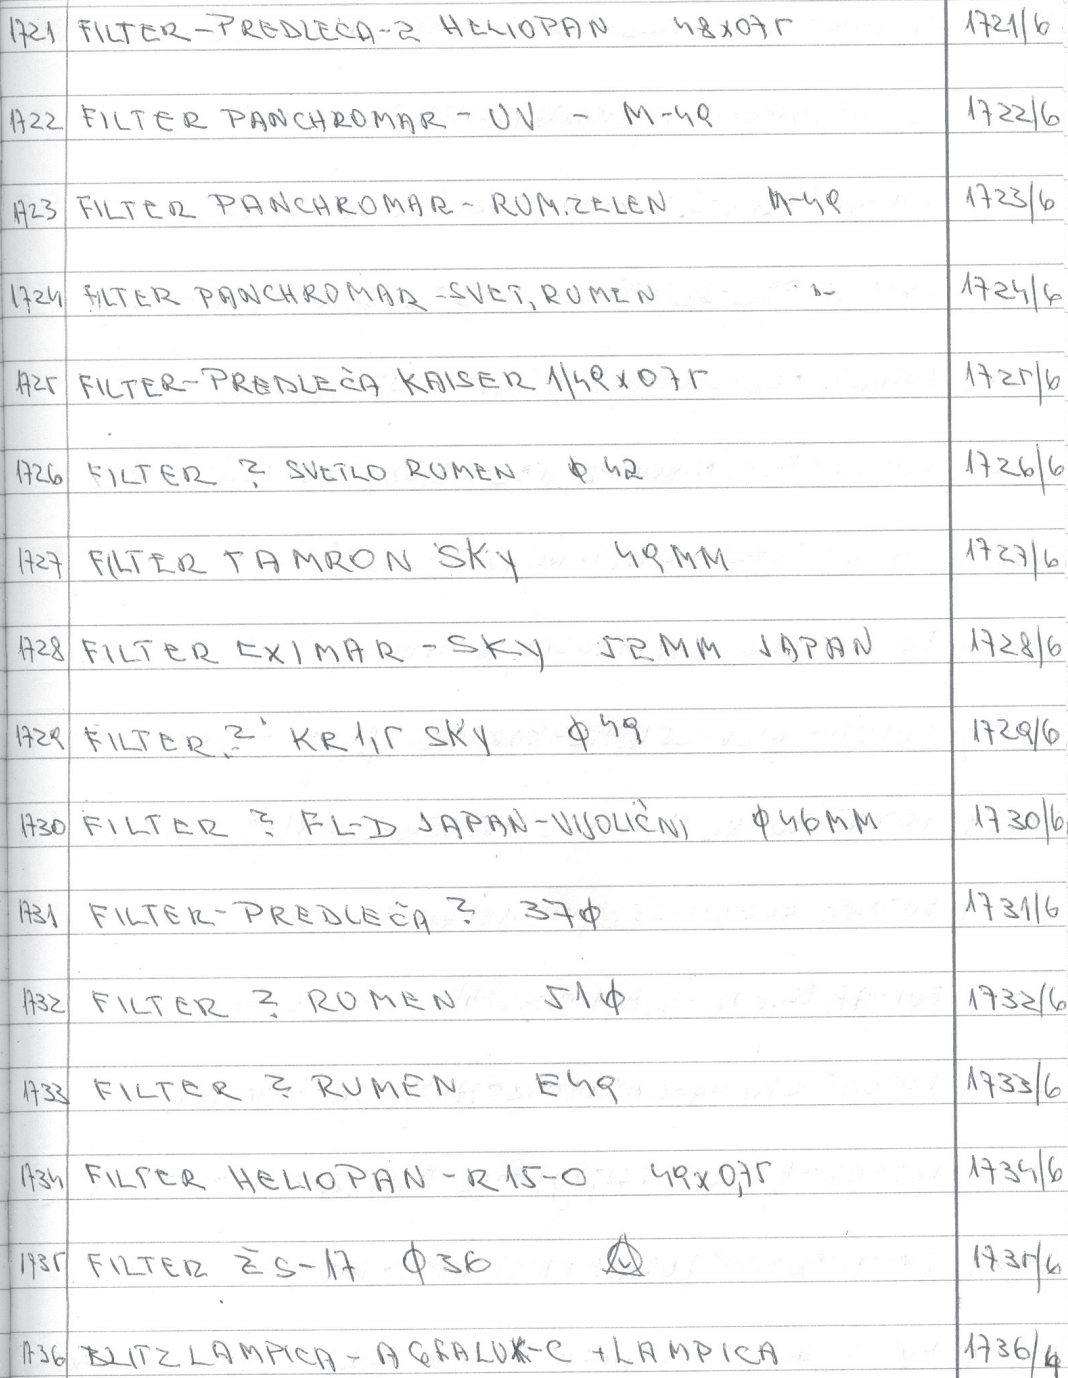 1721 FILTER-PREDLEČA-2 HELIOPAN 48x075 1721/6
1722 FILTER PANCHROMAR - UV - M-49 1722/6
1723 FILTER PANCHROMAR - RUM.ZELEN M-49 1723/6
1724 FILTER PANCHROMAR - SVET, RUMEN 1724/6
1725 FILTER-PREDLEČA KAISER 1/49x075 1725/6
1726 FILTER ? SVETLO RUMEN φ 42 1726/6
1727 FILTER TAMRON SKY 49MM 1727/6
1728 FILTER EXIMAR - SKY 52MM JAPAN 1728/6
1729 FILTER ? KR1,5 SKY φ49 1729/6
1730 FILTER ? FL-D JAPAN-VIJOLIČNI φ46MM 1730/6
1731 FILTER-PREDLEČA ? 37φ 1731/6
1732 FILTER ? RUMEN 51φ 1732/6
1733 FILTER ? RUMEN E49 1733/6
1734 FILTER HELIOPAN - R15-0 49x0,75 1734/6
1735 FILTER ŽS-17 φ36 1735/6
1736 BLITZ LAMPICA - AGFALUX-C + LAMPICA 1736/4